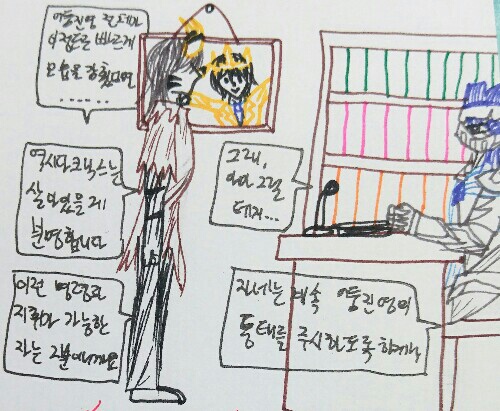 어둠진영 전체가
이정도로 빠르게
모습을 감췄다면
......
역시 다크닉스는
살아있을게
분명합니다
이런 명령과
지휘가 가능한
자는 그분에게요
그래,
아마 그럴
테지...
자네는 계속 어둠진영의
동태를 주시하도록 하게나